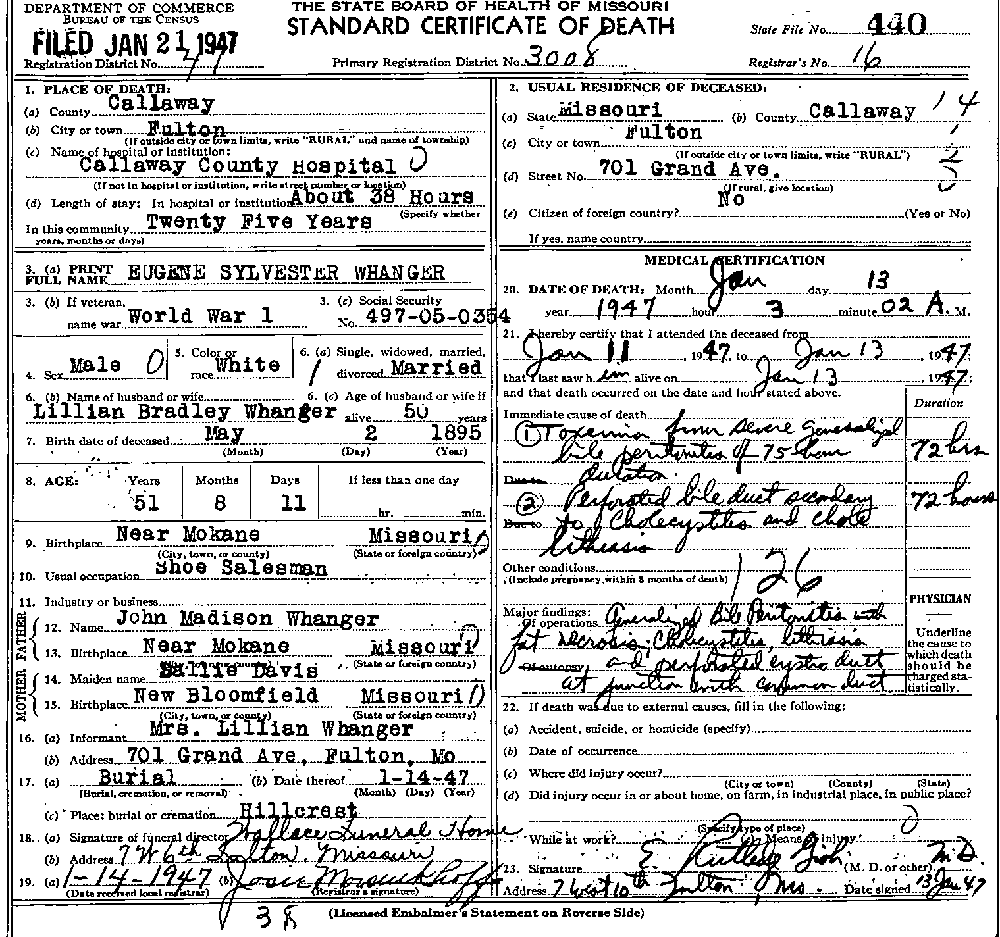 DEPARTMENT OF COMMERCE
BUREAU OF THE CENSUS
THE STATE BOARD OF HEALTH OF MISSOURI
STANDARD CERTIFICATE OF DEATH
State File No. 440
FILED JAN 21 1947
Registration District No. 47
Primary Registration District No. 3008
Registrar's No. 16
1. PLACE OF DEATH:
(a) County Callaway
(b) City or town Fulton
(If outside city or town limits, write "RURAL" and name of township)
(c) Name of hospital or institution:
Callaway County Hospital 0
(If not in hospital or institution, write street number or location)
(d) Length of stay: In hospital or institution About 38 Hours
(Specify whether
In this community Twenty Five Years
years, months or days)
3. (a) PRINT FULL NAME EUGENE SYLVESTER WHANGER
3. (b) If veteran, name war World War 1
3. (c) Social Security No. 497-05-0354
4. Sex Male 0
5. Color or race White
6. (a) Single, widowed, married, divorced Married 1
6. (b) Name of husband or wife
Lillian Bradley Whanger
6. (c) Age of husband or wife if alive 50 years
7. Birth date of deceased May 2 1895
(Month) (Day) (Year)
8. AGE: Years Months Days If less than one day
51 8 11 hr. min.
9. Birthplace Near Mokane Missouri
(City, town, or county) (State or foreign country)
10. Usual occupation Shoe Salesman
11. Industry or business
FATHER
12. Name John Madison Whanger
13. Birthplace Near Mokane Missouri
(State or foreign country)
MOTHER
14. Maiden name Sallie Davis
15. Birthplace New Bloomfield Missouri
(City, town, or county) (State or foreign country)
16. (a) Informant Mrs. Lillian Whanger
(b) Address 701 Grand Ave, Fulton, Mo
17. (a) Burial (b) Date thereof 1-14-47
(Burial, cremation, or removal) (Month) (Day) (Year)
(c) Place: burial or cremation Hillcrest
18. (a) Signature of funeral director Wallace Funeral Home
(b) Address 7 W 6th Fulton, Missouri
19. (a) 1-14-1947 (b) Josie
(Date received local registrar) (Registrar's signature)
38
2. USUAL RESIDENCE OF DECEASED:
(a) State Missouri (b) County Callaway 14
(c) City or town Fulton
(If outside city or town limits, write "RURAL")
(d) Street No. 701 Grand Ave.
(If rural, give location)
(e) Citizen of foreign country? No (Yes or No)
If yes, name country
MEDICAL CERTIFICATION
20. DATE OF DEATH: Month Jan day 13
year 1947 hour 3 minute 02 A. M.
21. I hereby certify that I attended the deceased from
Jan 11, 1947, to Jan 13, 1947;
that I last saw him alive on Jan 13, 1947;
and that death occurred on the date and hour stated above.
Duration
Immediate cause of death
1 Toxemia from severe generalized
bile peritonitis of 75 hour 72 hrs
Due to duration
2 Perforated bile duct secondary 72 hours
Due to to Cholecystitis and chole
lithiasis
Other conditions
(Include pregnancy within 3 months of death)
126
Major findings:
Of operations Generalized Bile Peritonitis with
fat necrosis, Cholecystitis, lithiasis
Of autopsy and perforated cystic duct
at junction with common duct
PHYSICIAN
Underline
the cause to
which death
should be
charged sta-
tistically.
22. If death was due to external causes, fill in the following:
(a) Accident, suicide, or homicide (specify)
(b) Date of occurrence
(c) Where did injury occur?
(City or town) (County) (State)
(d) Did injury occur in or about home, on farm, in industrial place, in public place?
0
(Specify type of place)
While at work? (e) Means of injury
23. Signature (M. D. or other) M.D.
Address 7 West 6th Fulton Mo. Date signed 13 Jan 47
(Licensed Embalmer's Statement on Reverse Side)